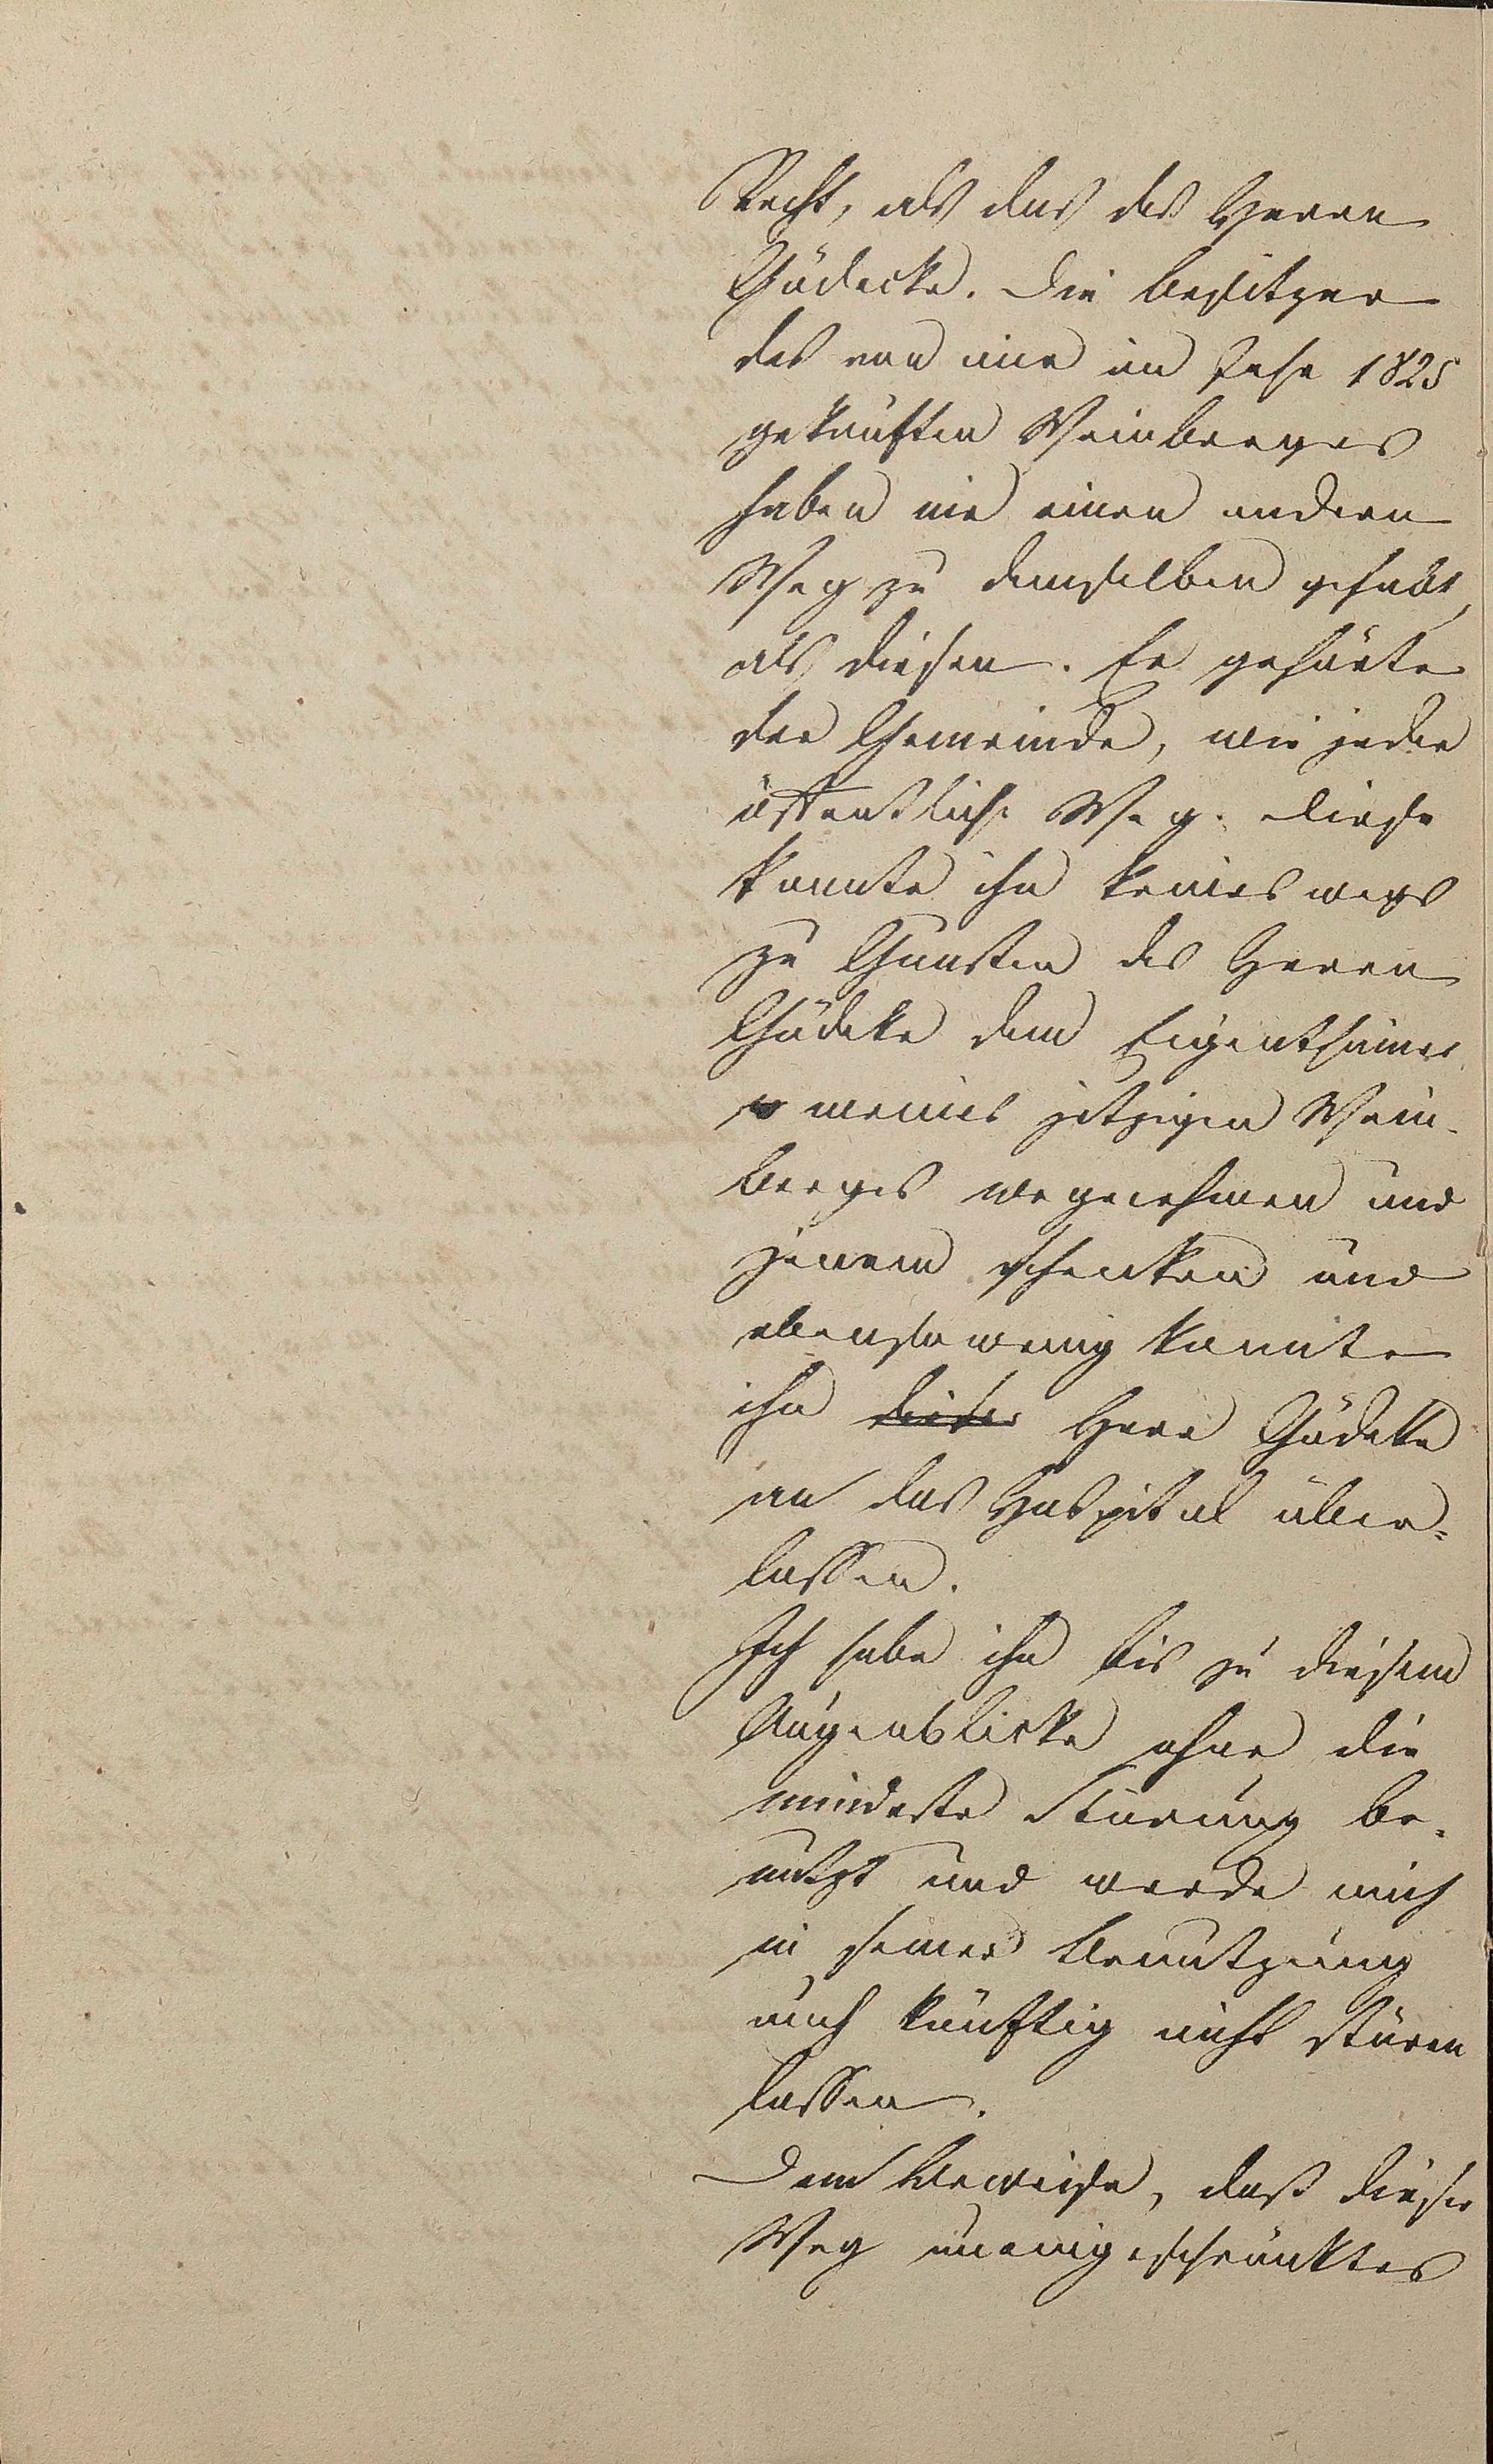 Recht, als das des Herrn
Gädecke. Die Besitzer
des von mir im Jahr 1825
gekauften Weinberges
haben nie einen andern
Weg zu demselben gehabt,
als diesen. Er gehörte
der Gemeinde, wie jeder
öffentliche Weg. Diese
konnte ihn keineswegs
zu Gunsten des Herrn
Gädeke dem Eigenthümer
meines jetzigen Wein-
berges wegnehmen und
jenem schenken und
ebensowenig konnte
ihn dieser Herr Gädeke
an das Hospital über=
lassen.
Ich habe ihn bis zu diesem
Augenblicke ohne die
mindeste Störung be-
nutzt und werde mich
in seiner Benutzung
auch künftig nicht stören
lassen.
Dem Beweise, daß dieser
Weg uneingeschränktes